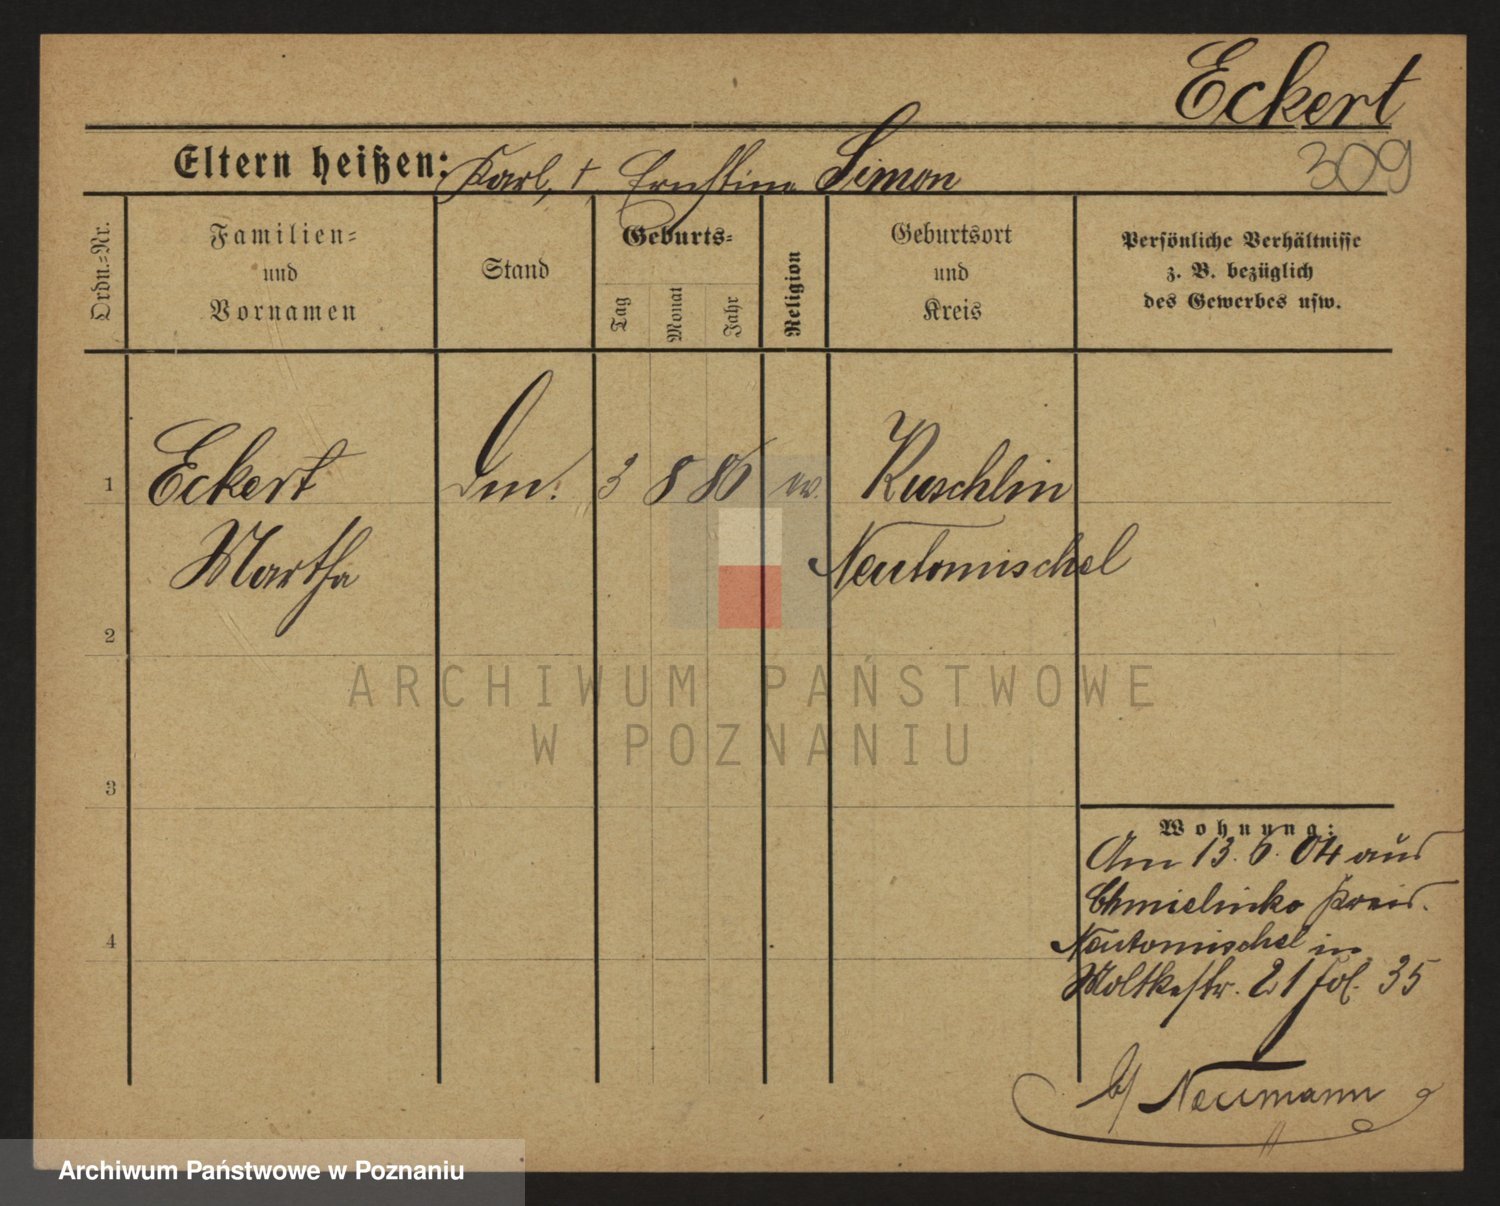 Eckert
309
Eltern heißen: Karl, + Ernestine Simon
Ordn.-Nr.
Familien-
und
Vornamen
Stand
Geburts-
Tag
Monat
Jahr
Religion
Geburtsort
und
Kreis
Persönliche Verhältnisse
z. B. bezüglich
des Gewerbes usw.
1 Eckert 3 8 86 ev. Kuschlin
Martha Neutomischel
2
ARCHIWUM PAŃSTWOWE
W POZNANIU
3
Wohnung:
Am 13.6.04 aus
Chmielinko Kreis.
4
Neutomischel in
Moltkestr. 21 fol. 35
b/ Neumann
Archiwum Państwowe w Poznaniu